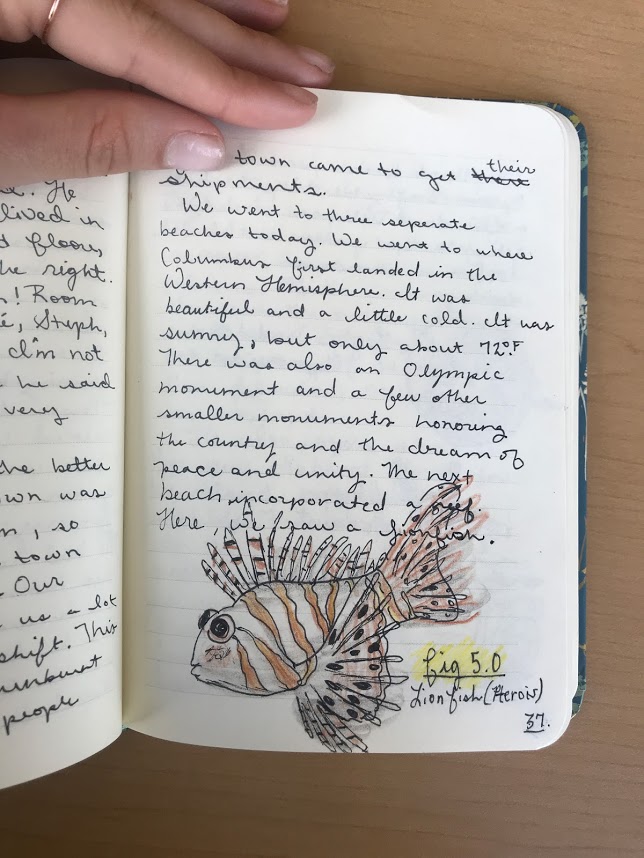 . He
lived in
floors,
he right.
! Room
é, Steph,
I'm not
he said
very
the better
own was
n, so
town
Our
us a lot
shift. This
sunburnt
people
town came to get their
shipments.
We went to three seperate
beaches today. We went to where
Columbus first landed in the
Western Hemisphere. It was
beautiful and a little cold. It was
sunny, but only about 72°F
There was also an Olympic
monument and a few other
smaller monuments honoring
the country and the dream of
peace and unity. The next
beach incorporated a reef.
Here, we saw a lionfish.
fig 5.0
Lion fish (Pterois)
37.